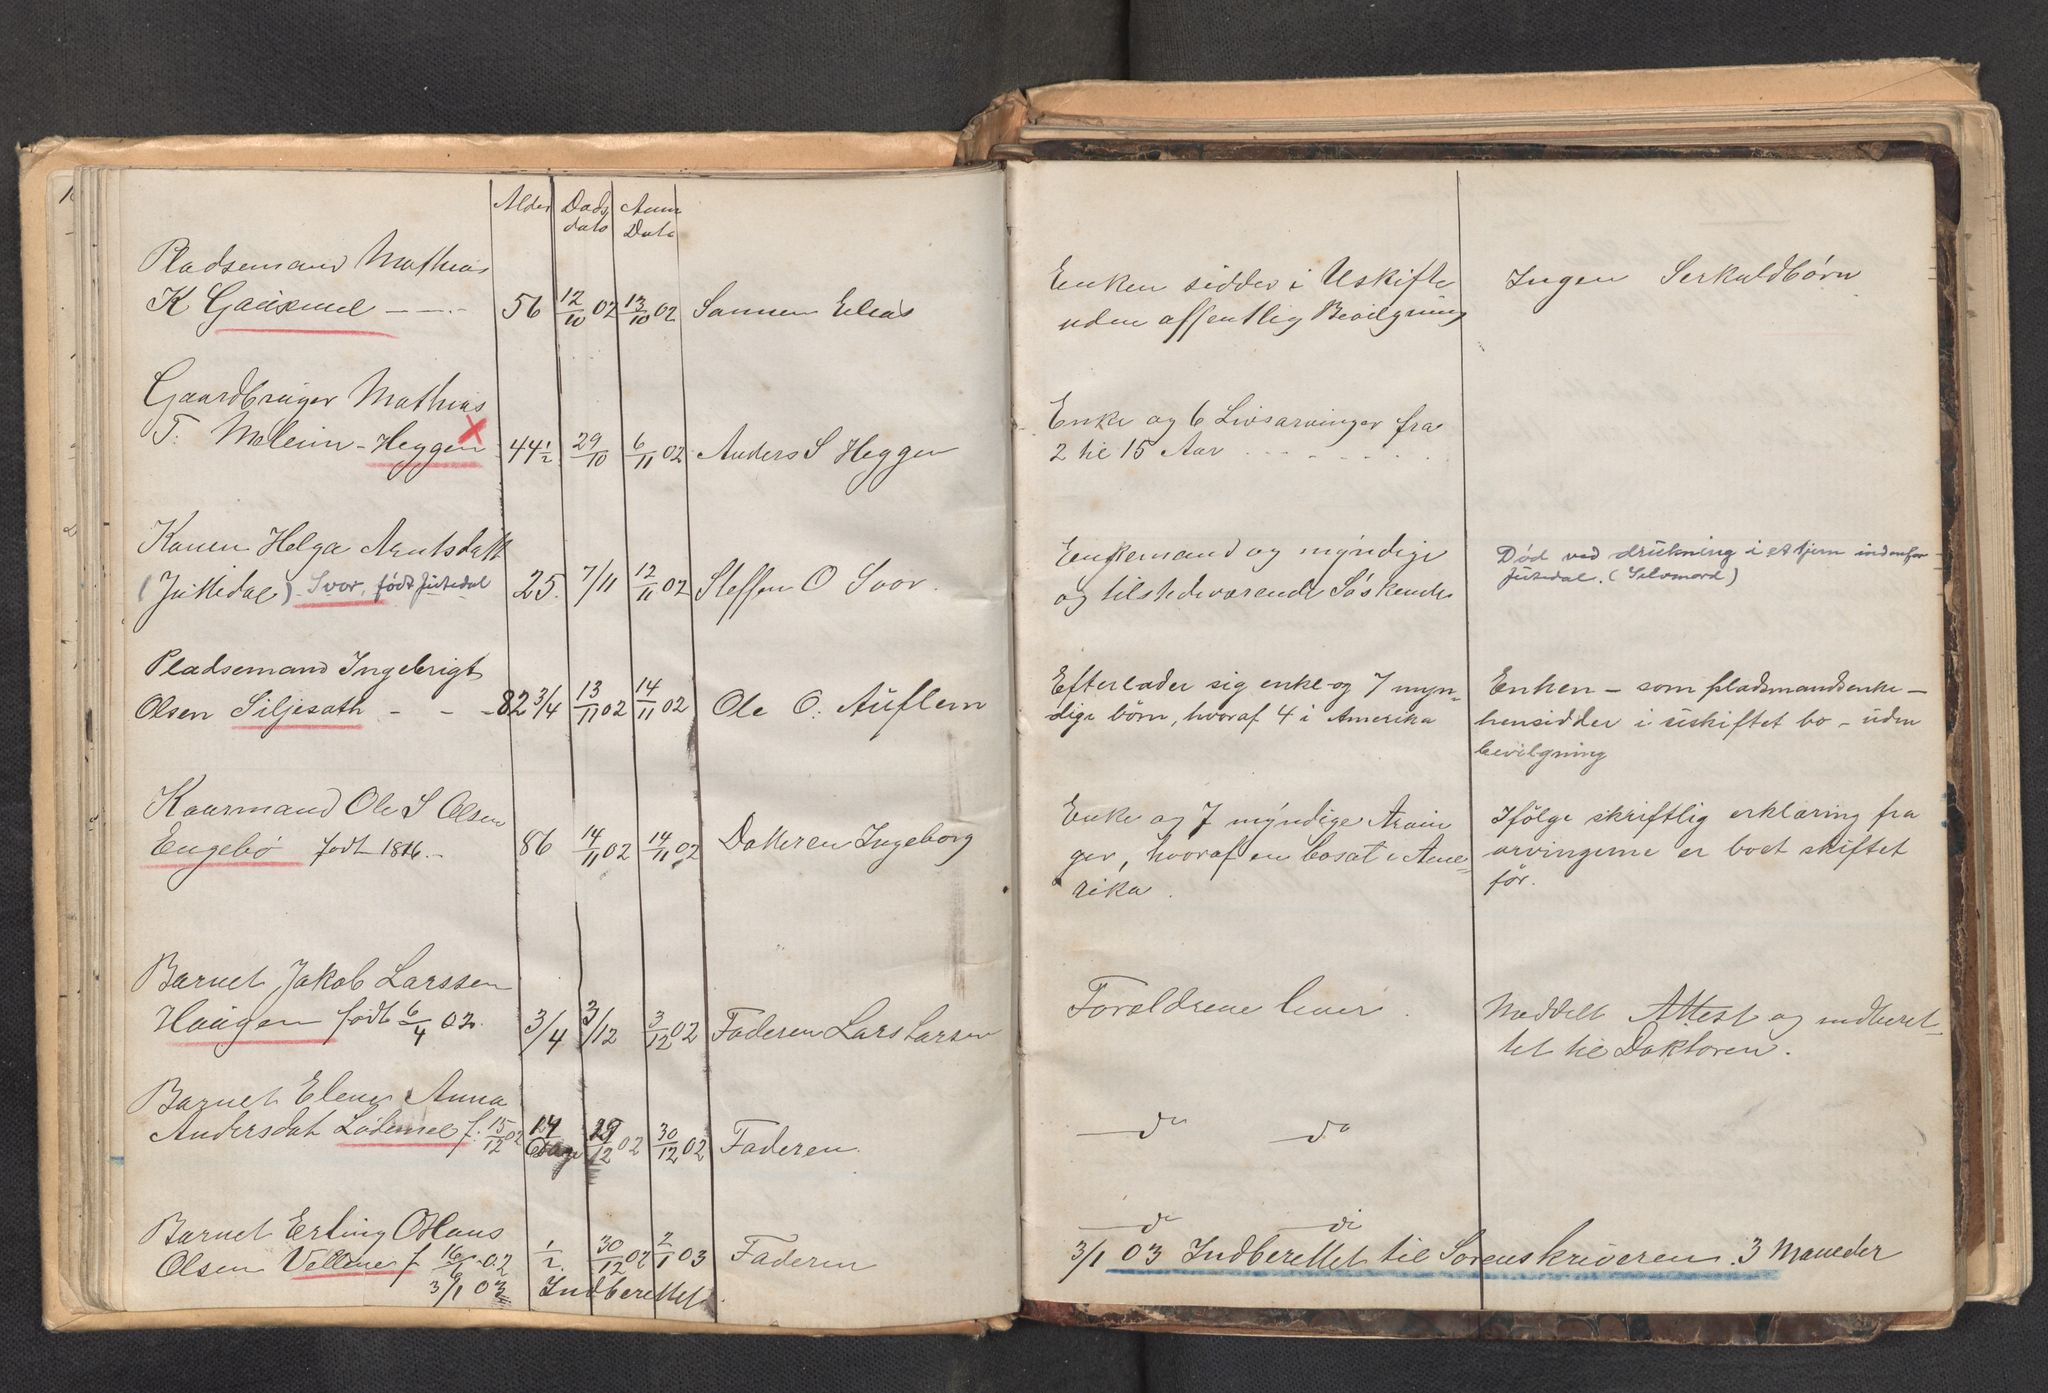 Alder Døds dato Anm Dato
Pladsemand Mathias
K Gauxmel — — 56 12/10 02 13/10 02 Sønnen Elias Enken sidder i Uskifte Ingen Særkuldbørn
uden offentlig Bevilgning
Gaardbruger Mathias
T. Melein - Heggen 44 1/2 29/10 6/11 02 Anders S Heggen Enke og 6 Livsarvinger fra
2 til 15 Aar
Konen Helga Arntsdatt Enkemand og myndige Død ved drukning i et tjern indenfor
(Juttedal) Svor, født Jutedal 25. 7/11 12/11 02 Steffen O Svor. og tilstedeværende Søskende Jutedal. (Selvmord)
Pladsemand Ingebrigt Efterlader sig enke og 7 myn- Enken – som pladsmandsenke –
Olsen Siljesath - - - 82 3/4 13/11 02 14/11 02 Ole O. Auflem dige børn, hvoraf 4 i Amerika hensidder i uskiftet bo – uden
bevilgning
Kaarmand Ole S Olsen Enke og 7 myndige Arvin Ifølge skriftlig erklæring fra
Engebø født 1816. 86 14/11 02 14/11 02 Datteren Ingeborg ger, hvoraf en bosat i Ame- arvingerne er boet skiftet
rika. før.
Barnet Jakob Larssen Forældrene lever.
Haugen født 6/4 02. 3/4 3/12 3/12 02 Faderen Lars Larsen Meddelt Attest og indberet-
tet til Doktoren.
Barnet Elene Anna
Andersdat Lødemel f. 15/12 02 14 Dage 29/12 02 30/12 02 Faderen. do do
Barnet Erling Hans do do
Olsen Vellene f 16/9 02 1/2. 30/12 02 2/1 03 Faderen
3/1 03 Indberettet. 3/1 03 Indberettet til Sorenskriveren. 3 Maneder